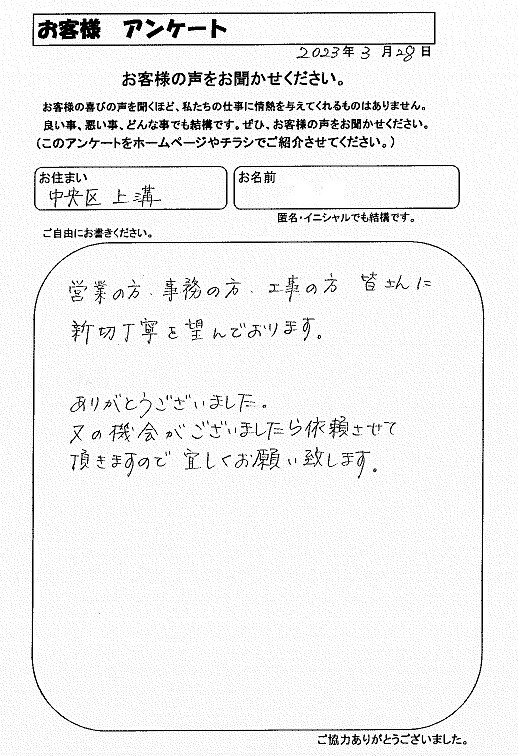 お客様 アンケート
2023年3月28日
お客様の声をお聞かせください。
お客様の喜びの声を聞くほど、私たちの仕事に情熱を与えてくれるものはありません。
良い事、悪い事、どんな事でも結構です。ぜひ、お客様の声をお聞かせください。
(このアンケートをホームページやチラシでご紹介させてください。)
お住まい
中央区 上溝
お名前
匿名・イニシャルでも結構です。
ご自由にお書きください。
営業の方、事務の方、工事の方 皆さんに
新切丁寧を望んでおります。
ありがとうございました。
又の機会がございましたら依頼させて
頂きますので 宜しくお願い致します。
ご協力ありがとうございました。